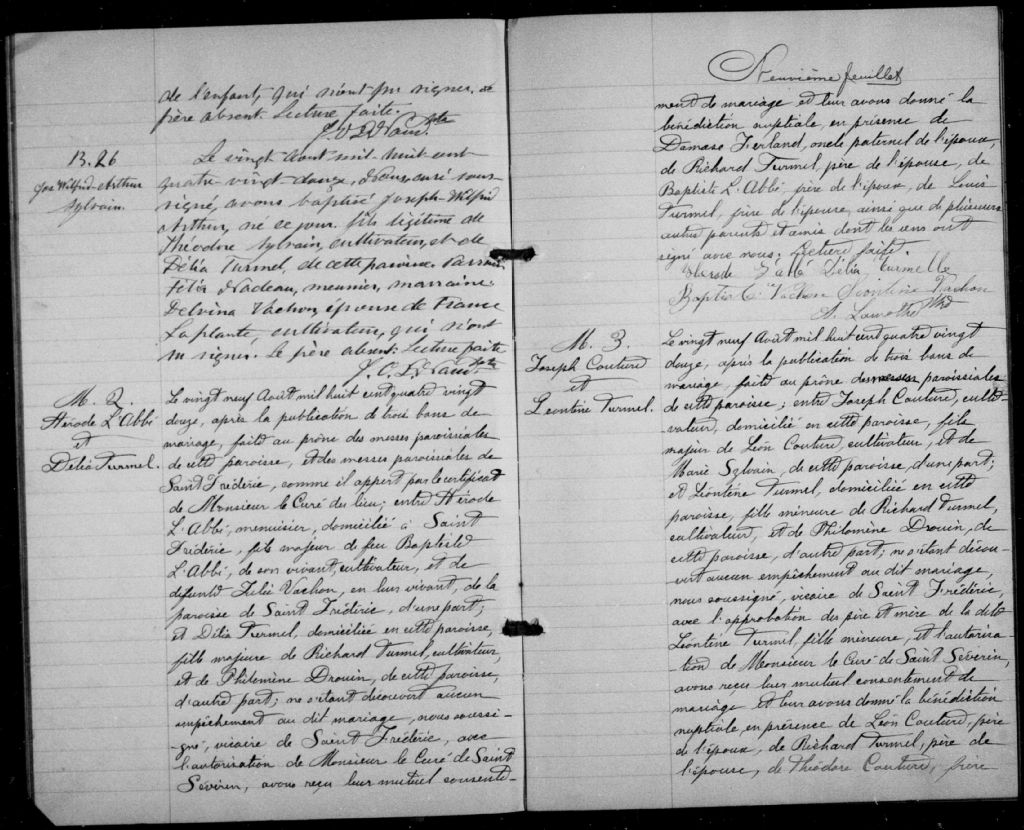 de l'enfant, qui n'ont pu signer. Le
père absent. Lecture faite.
B. 26
Jos Wilfrid-Arthur
Sylvain.
Le vingt Août mil-huit-cent
quatre-vingt-douze, Nous, curé sous-
signé, avons baptisé Joseph-Wilfrid
Arthur, né ce jour, fils légitime de
Théodore Sylvain, cultivateur, et de
Délia Turmel, de cette paroisse. Parrain
Félix Nadeau, meunier, marraine
Delvina Vachon, épouse de France
Laplante, cultivateur, qui n'ont
su signer. Le père absent. Lecture faite
M. 2.
Hérode L'Abbé
et
Délia Turmel.
Le vingt neuf Août mil huit cent quatre vingt
douze, après la publication de trois bans de
mariage, faite au prône des messes paroissiales
de cette paroisse, et des messes paroissiales de
Saint Frédéric, comme il appert par le certificat
de Monsieur le Curé du lieu; entre Hérode
L'Abbé, menuisier, domicilié à Saint
Frédéric, fils majeur de feu Baptiste
L'Abbé, de son vivant, cultivateur, et de
défunte Vachon, en son vivant, de la
paroisse de Saint Frédéric, d'une part;
et Délia Turmel, domiciliée en cette paroisse,
fille majeure de Richard Turmel, cultivateur,
et de Philomène Drouin, de cette paroisse,
d'autre part; ne s'étant découvert aucun
empêchement au dit mariage, nous soussi-
gné, vicaire de Saint Frédéric, avec
l'autorisation de Monsieur le Curé de Saint
Séverin, avons reçu leur mutuel consente-
Neuvième feuillet
ment de mariage et leur avons donné la
bénédiction nuptiale, en présence de
Damase Ferland, oncle paternel de l'époux,
de Richard Turmel, père de l'épouse, de
Baptiste L'Abbé, frère de l'époux, de Louis
Turmel, frère de l'épouse, ainsi que de plusieurs
autres parents et amis dont les uns ont
signé avec nous. Lecture faite.
Délia Turmelle
Baptiste Vachon Léontine Vachon
M. 3.
Joseph Couture
et
Léontine Turmel.
Le vingt neuf Août mil huit cent quatre vingt
douze, après la publication de trois bans de
mariage, faite au prône des messes paroissiales
de cette paroisse; entre Joseph Couture, culti-
vateur, domicilié en cette paroisse, fils
majeur de Léon Couture, cultivateur, et de
Marie Sylvain, de cette paroisse, d'une part;
et Léontine Turmel, domiciliée en cette
paroisse, fille mineure de Richard Turmel,
cultivateur, et de Philomène Drouin, de
cette paroisse, d'autre part; ne s'étant décou-
vert aucun empêchement au dit mariage,
nous soussigné, vicaire de Saint Frédéric,
avec l'approbation des père et mère de la dite
Léontine Turmel, fille mineure, et l'autorisa-
tion de Monsieur le Curé de Saint Séverin,
avons reçu leur mutuel consentement de
mariage et leur avons donné la bénédiction
nuptiale, en présence de Léon Couture, père
de l'époux, de Richard Turmel, père de
l'épouse, de Théodore Couture, frère